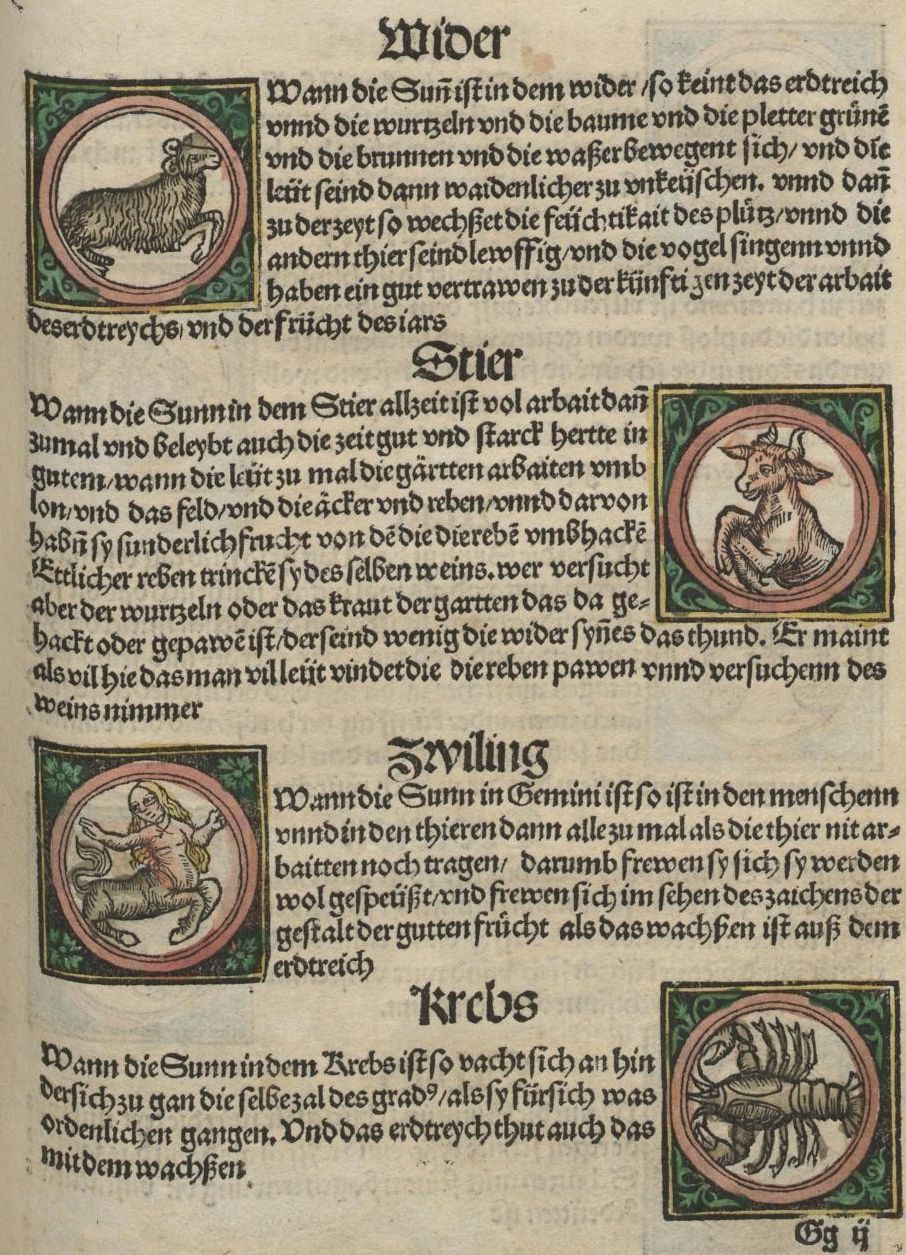 Wider
Wann die Sun̄ ist in dem wider /so keint das erdtreich
vnnd die wurtzeln vnd die baume vnd die pletter grünē
vnd die brunnen vnd die waßer bewegent sich/ vnd die
leüt seind dann waidenlicher zu vnkeüschen. vnnd dan̄
zu der zeyt so wechßet die feüchtikait des plütz/vnnd die
andern thier seind lewffig/vnd die vogel singenn vnnd
haben ein gut vertrawen zu der künftigen zeyt der arbait
des erdtreychs/ vnd der frücht des iars
Stier
Wann die Sunn in dem Stier allzeit ist vol arbait dan̄
zumal vnd beleybt auch die zeit gut vnd starck hertte in
gutem/wann die leüt zu mal die gärtten arbaiten vmb
lon/vnd das feld/vnd die äcker vnd reben/vnnd darvon
habn̄ sy sunderlich frucht von dē die die rebē vmbhackē
Ettlicher reben trinckē sy des selben weins. wer versucht
aber der wurtzeln oder das kraut der gartten das da ge⸗
hackt oder gepawē ist/der seind wenig die wider syn̄es das thund. Er maint
als vil hie das man vil leüt vindet die die reben pawen vnnd versuchenn des
weins nimmer
Zwiling
Wann die Sunn in Gemini ist so ist in den menschenn
vnnd in den thieren dann alle zu mal als die thier nit ar⸗
baitten noch tragen/ darumb frewen sy sich sy werden
wol gespeüßt/vnd frewen sich im sehen des zaichens der
gestalt der gutten frücht als das wachßen ist auß dem
erdtreich
Krebs
Wann die Sunn in dem Krebs ist so vacht sich an hin
dersich zu gan die selbe zal des gradꝰ/als sy fürsich was
ordenlichen gangen. Vnd das erdtreych thut auch das
mit dem wachßen
Gg ij